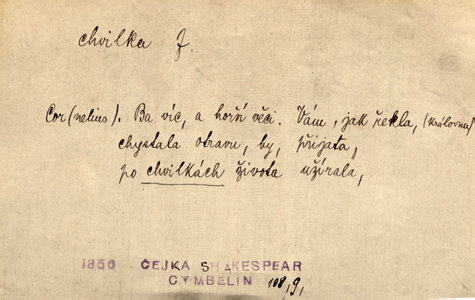 chvilka f.
Cor(nelius). Ba víc, a horší věci. Vám, jak řekla, (královna)
chystala otravu, by, přijata,
po chvilkách života užírala,
1856 ČEJKA SHAKESPEAR
CYMBELIN 108,9,